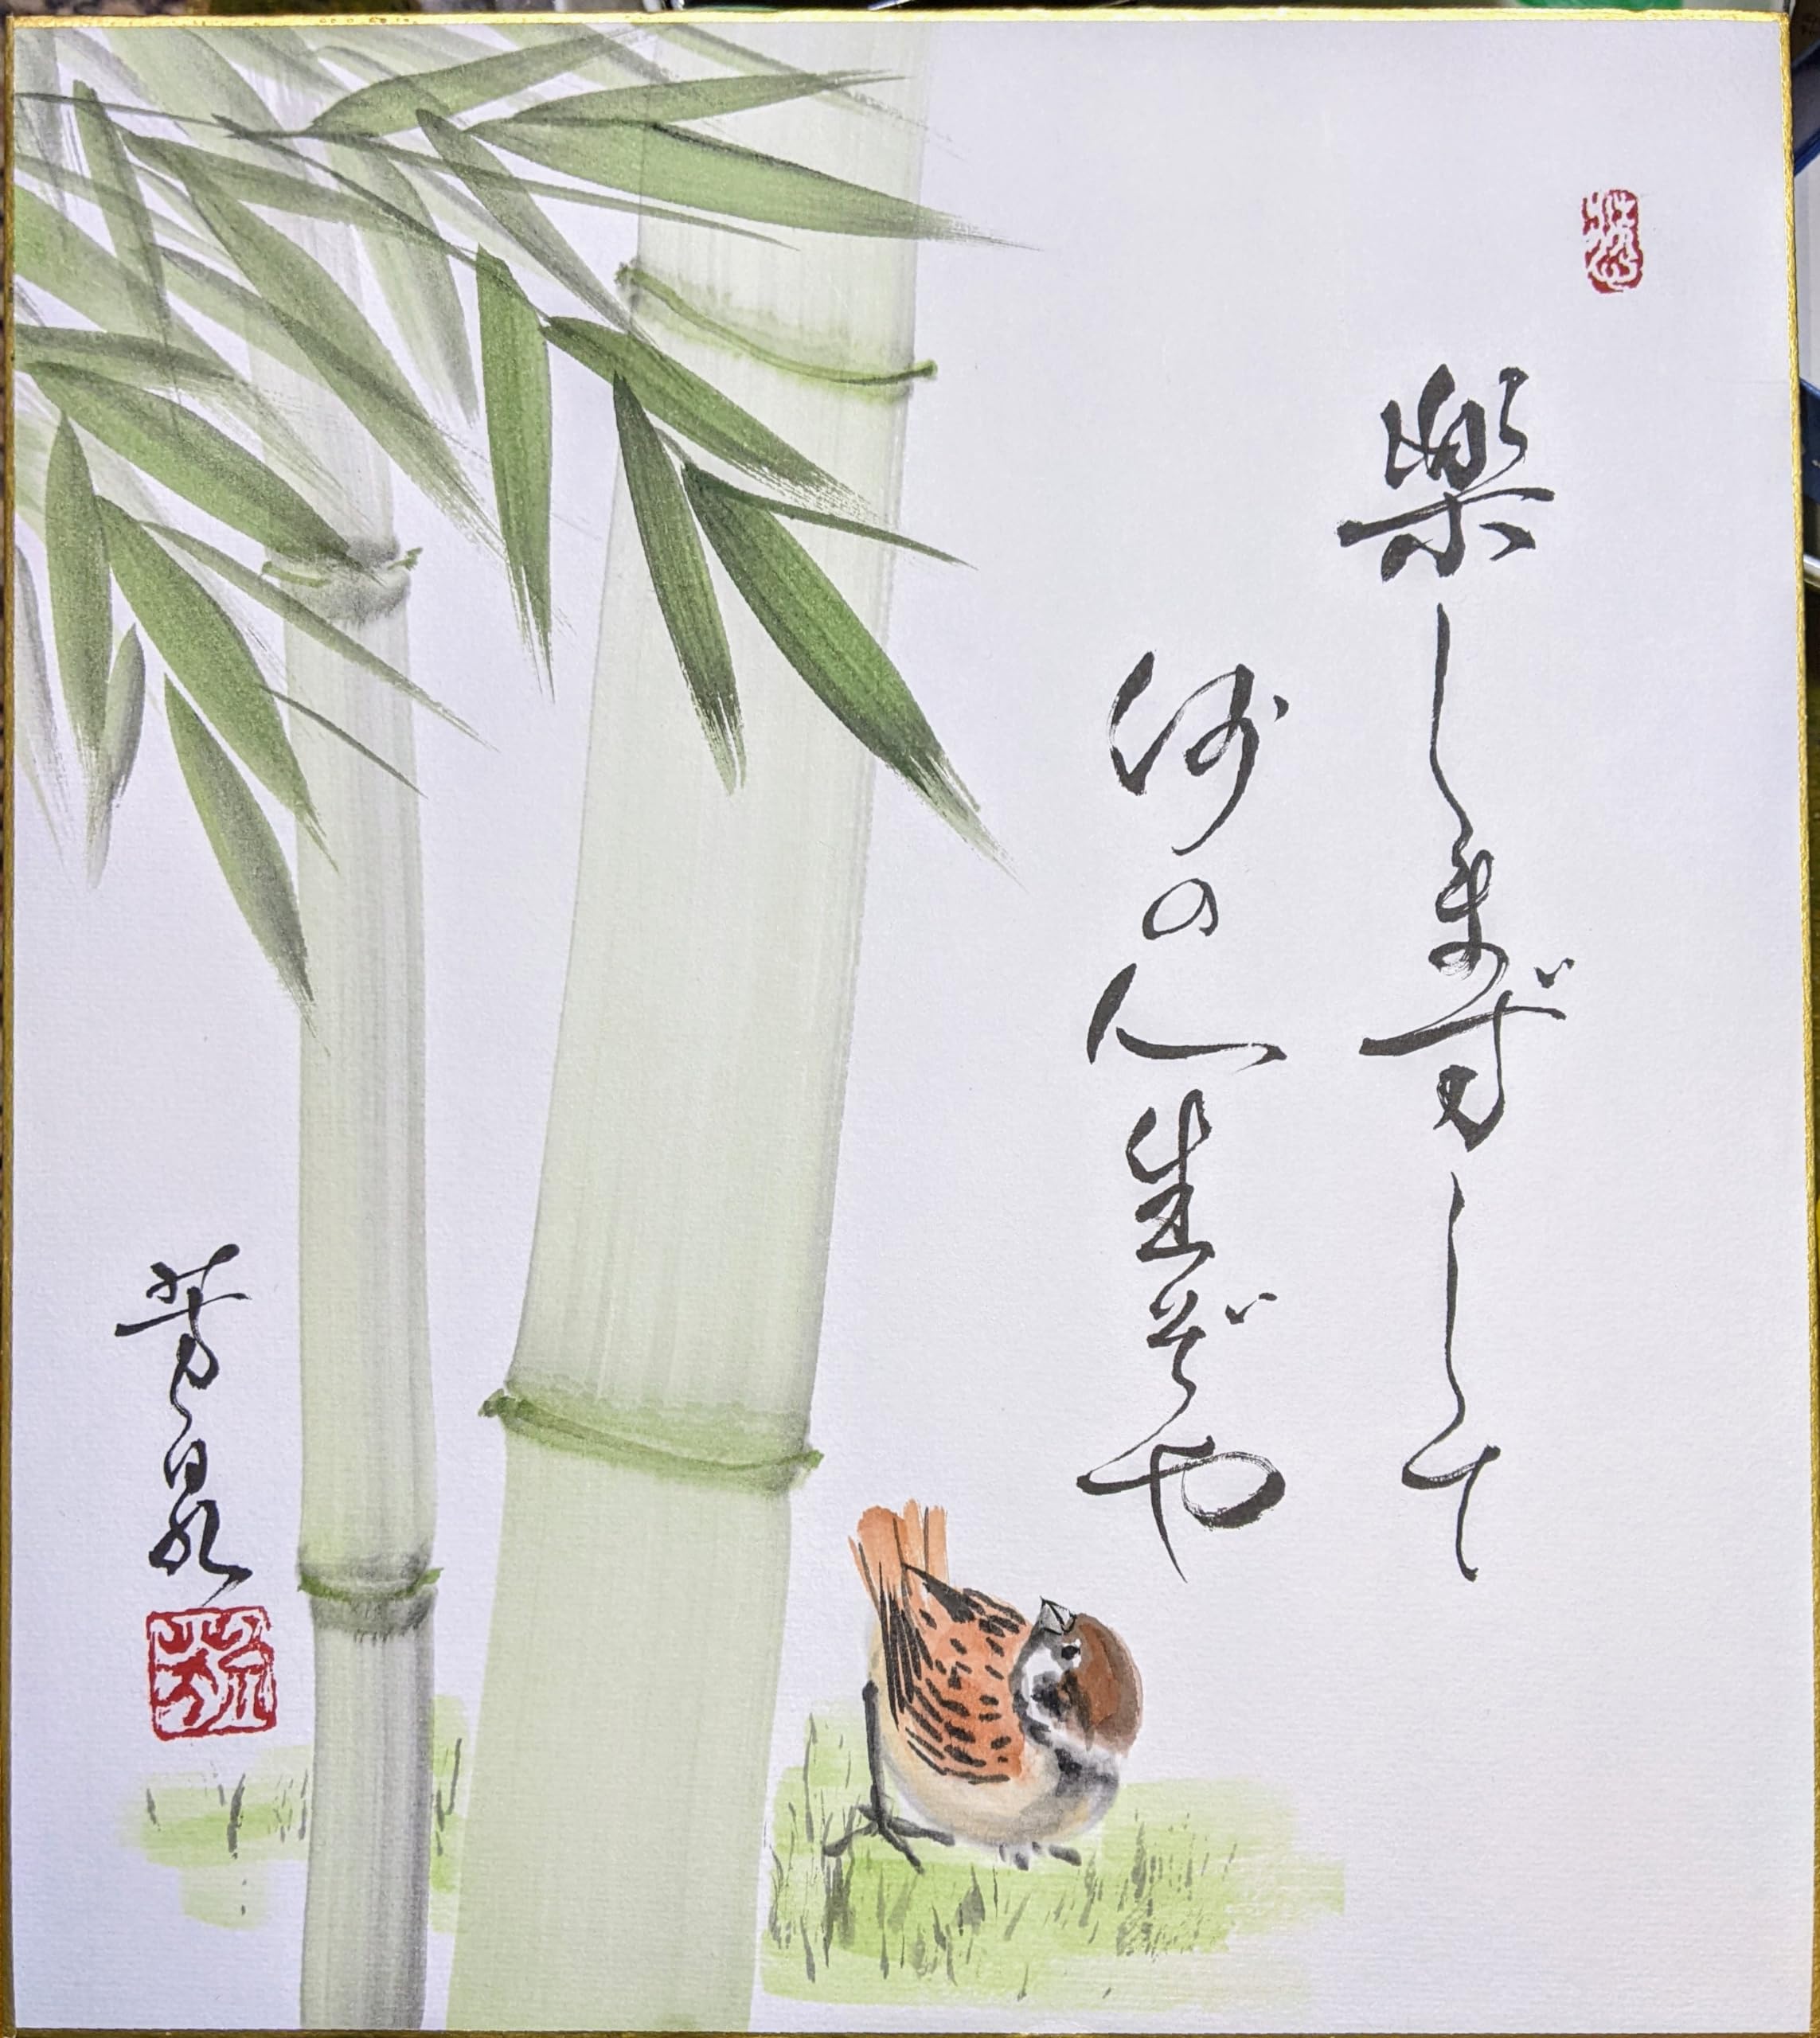 楽しまずして
何の人生ぞや
芳泉